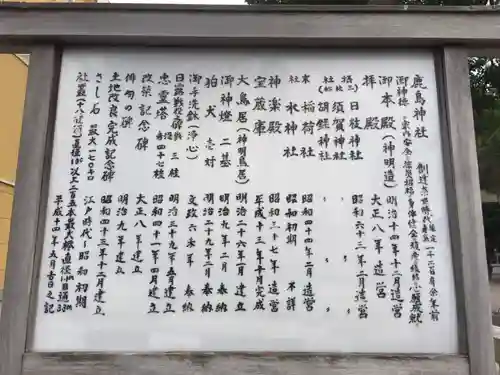 鹿島神社
御本殿(神明造) 明治十四年十二月造営
拝殿 大正八年 造営
日枝神社 昭和六十三年二月造営
須賀神社 〃
胡録神社 〃
稲荷社 昭和四十四年二月造営
水神社 昭和初期 不詳
神楽殿 昭和三十七年 造営
宝蔵庫 平成十三年十月完成
大鳥居(神明鳥居) 明治二十六年二月 建立
御神燈 二基 明治九年二月 奉納
狛犬 壱対 明治三十九年二月 奉納
御手洗鉢(浄心) 文政六未年 奉納
日露戦役碑 三柱 明治三十九年五月建立
忠霊塔 四十七柱 昭和四十一年四月建立
改築記念碑 大正八年 建立
俳句の碑 明治九年 建立
土地改良完成記念碑 昭和四十三年十二月建立
さし石 最大一七〇キロ 江戸時代〜昭和初期
平成十四年五月吉日之記